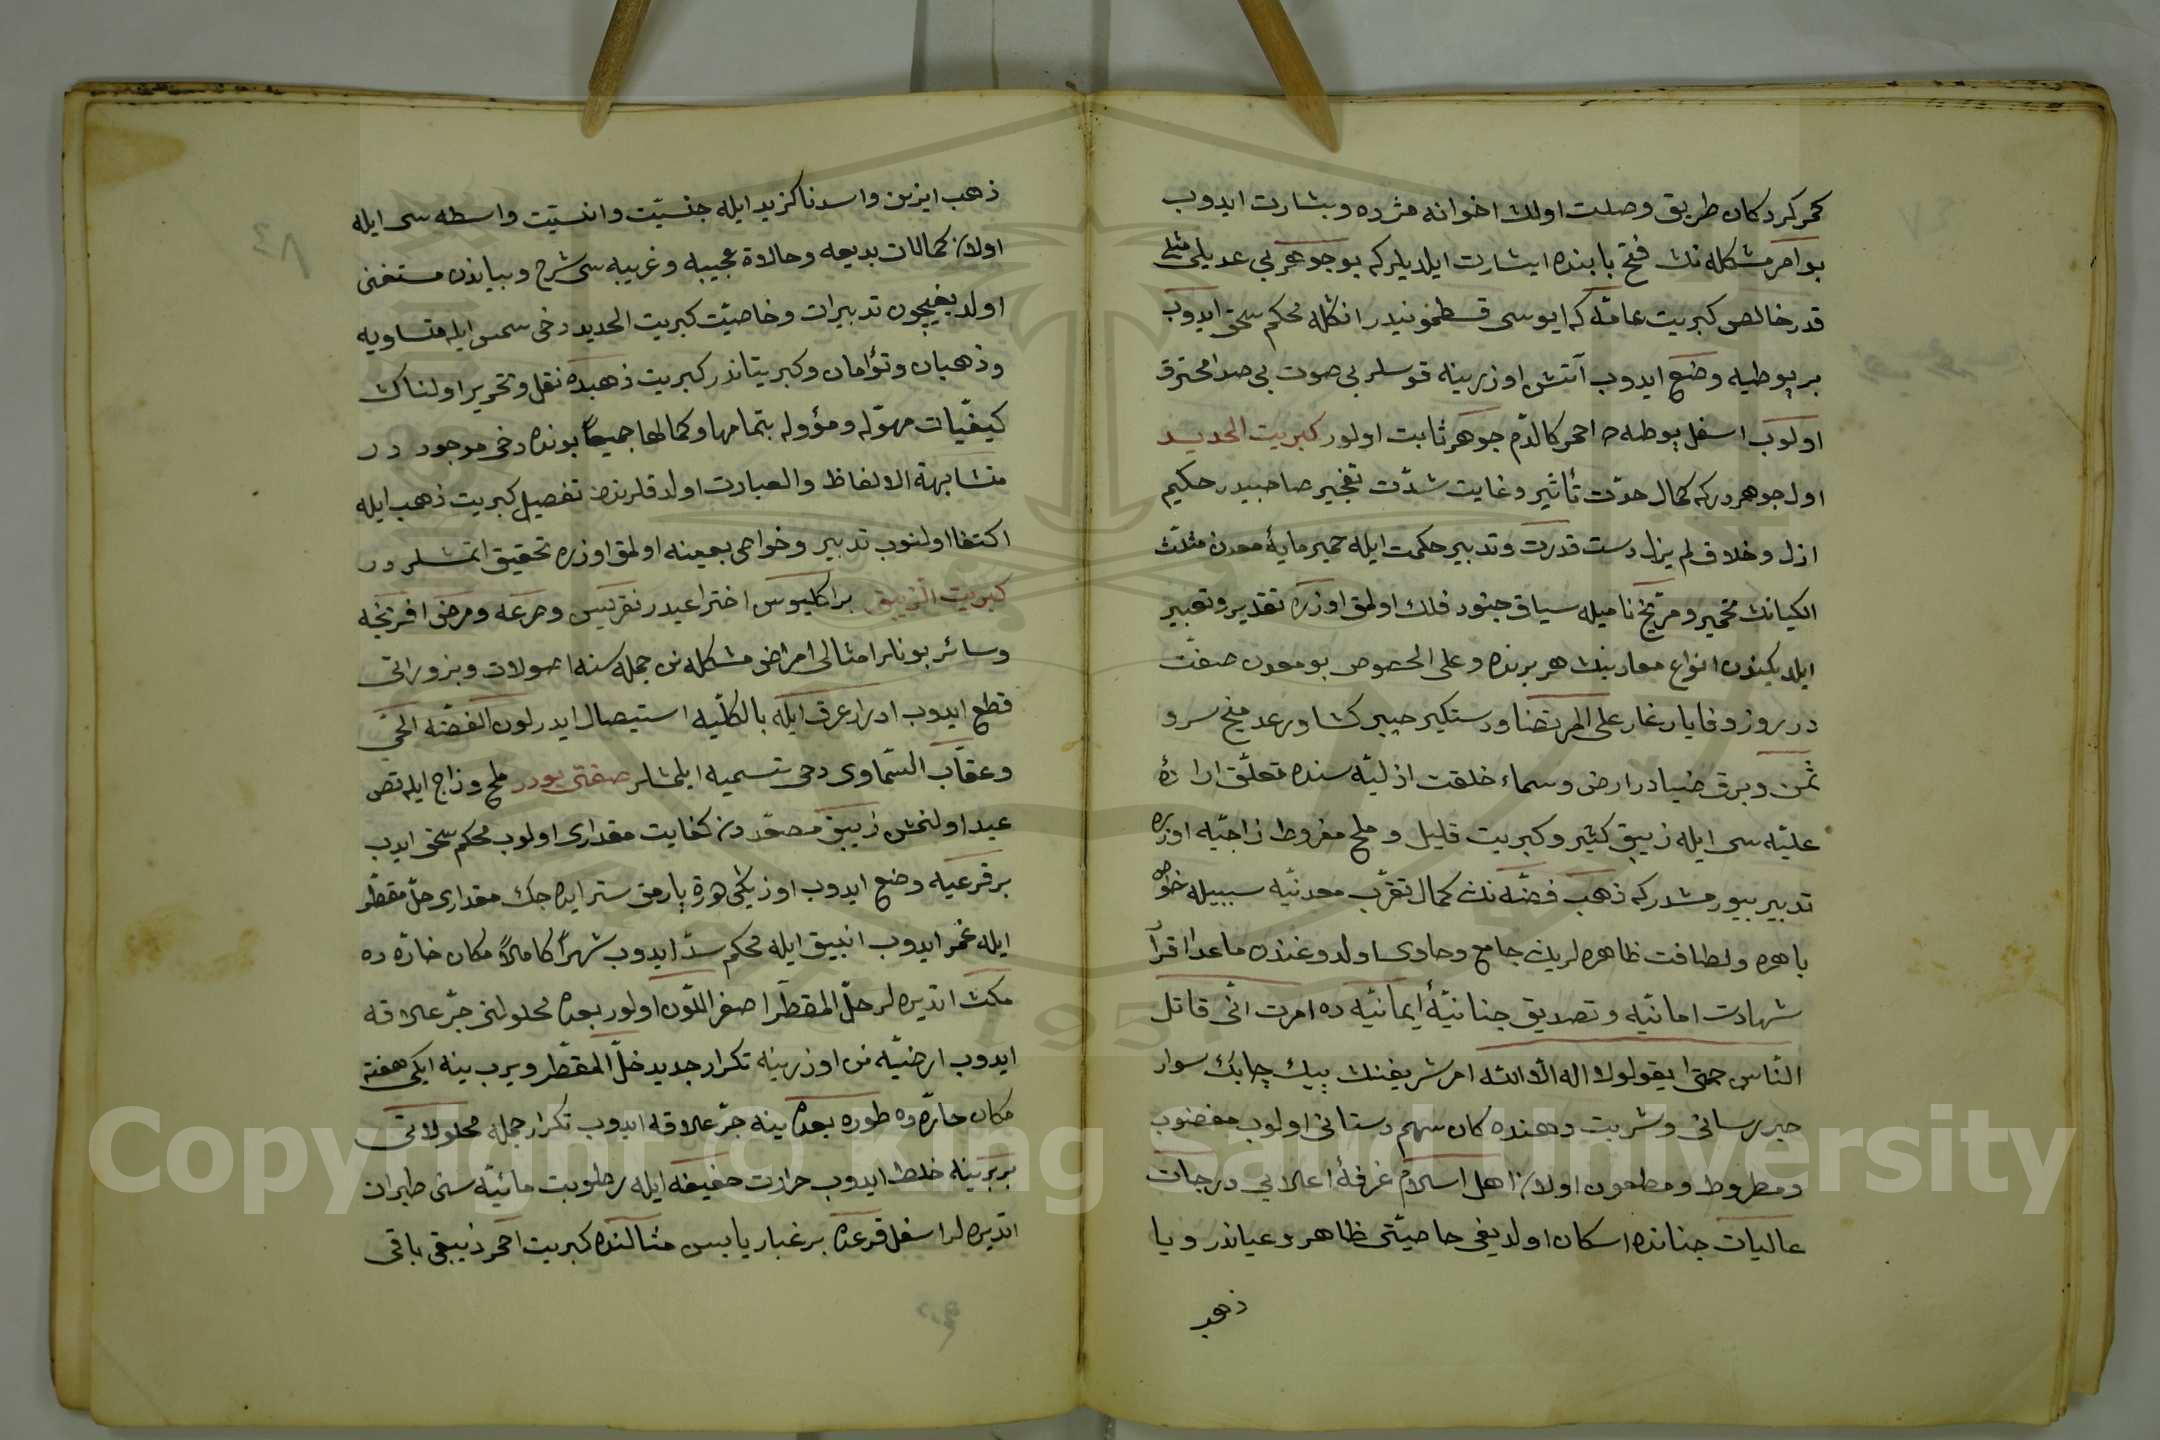 كمركردكان طريق وصلت اولان اخوانه مژده و بشارت ايدوب
بو امر مشكله نك فتح بابنده ايشارت ايلديلركه بو جوهر بى عديلى مثلى
قدر خالص كبريت عامّه كه ايوسى قسطمونيدر انكله محكم سحق ايدوب
بر پوطيه وضع ايدوب آتش اوزرينه قوسلر بى صوت بى صدا محترق
اولوب اسفل پوطه ده احمر كالدّم جوهر ثابت اولور كبريت الحديد
اول جوهردركه كمال حدّت تأثير و غايت شدّت تفجير صاحبيدر حكيم
ازل و خلاف لم يزل دست قدرت و تدبير حكمت ايله خمير مايۀ معدن مثلث
الكيانك تخمير و مرّيخ ناميله سياق جنود فلك اولمق اوزره تقدير و تعبير
ايلديكندن انواع معادينك هر برنده و على الخصوص بو معدن صفت
در روز وفا يار غار على المرتضا و دستكير خيبركشا و رعد منح سرو
ثمن و برق ضيادر ارض و سماء خلقت ازليّه سنده متعلّق اراده
عليّه سى ايله زيبق كثير و كبريت قليل و ملح مفروط زاجيّه اوزره
تدبير بيورمشدركه ذهب فضّه نك كمال تقرّب معدنيّه سببيله خواص
باهره و لطافت ظاهره لرين جامع و حاوى اولدوغندن ماعدا اقرآ
شهادت امانيّه و تصديق جنانيّۀ ايمانيّه ده امرت انّى قاتل
النّاس حتى يقولوا لا اله الّا الله امر شريفنك پيك چابك سوار
خبر رسانى و شربت دهنده كان سهم دستانى اولوب مغضوب
و مطروط و مطعون اولان اهل اسلام غرفۀ اعلاى درجات
عاليات جنانده اسكان اولديغى خاصيّتى ظاهر و عياندر و يا
ذهب
ذهب ايزين و اسد ناكزيد ايله جنسيّت و انسيّت واسطه سى ايله
اولان كمالات بديعه و حالاة عجيبه و غريبه سى شرح و بياندن مستغنى
اولديغيچون تدبيرات و خاصيّت كبريت الحديد دخى شمس ايله متساويه
و ذهبان و توأمان و كبريتاندر كبريت ذهبده نقل و تحرير اولناك
كيفيّات مهوّله و مؤوله بتمامها و كمالها جميعاً بونده دخى موجود در
متشابهة الالفاظ والعبارت اولدقلرندن تفصيل كبريت ذهب ايله
اكتفا اولنوب تدبير و خواصى بعينه اولمق اوزره تحقيق اتمشلردر
كبريت الزيبق براكليوس اختراعيدر نقريس و صرعه و مرض افرنجه
و سائر بونلر امثالى امراض مشكله نن جمله سنه اصولات و بزوراتى
قطع ايدوب ادرار عرق ايله بالكلّيه استيصال ايدر لون الفضّه الحىّ
و عقاب السّماوى دخى تسميه ايلمشلر صفتى بودر ملح و زاج ايله تص
عيد اولنمش زيبق مصعّد دن كفايت مقدارى اولوب محكم سحق ايدب
بر قرعيه وضع ايدوب اوزيكى هرة پارمق ستر ايده جك مقدارى خلّ مقطّر
ايله غمر ايدوب انبيق ايله محكم سدّ ايدوب شهرًا كاملاً مكان حارّه ده
مكث اتديره لر خلّ المقطّر اصفر اللّون اولور بعده محلولنى جرّ علاقه
ايدوب ارضيّه نن اوزرينه تكرار جديد خلّ المقطّر ويرب ينه ايكى هفته
مكان حارّه ده طوره بعده ينه جرّ علاقه ايدوب تكرار جمله محلولاتى
بربرينه خلط ايدوب حرارت خفيفه ايله رطوبت مائيّه سنى طيران
اتديره لر اسفل قرعده بر غبار يابس مثالنده كبريت احمر زيبقى باقى